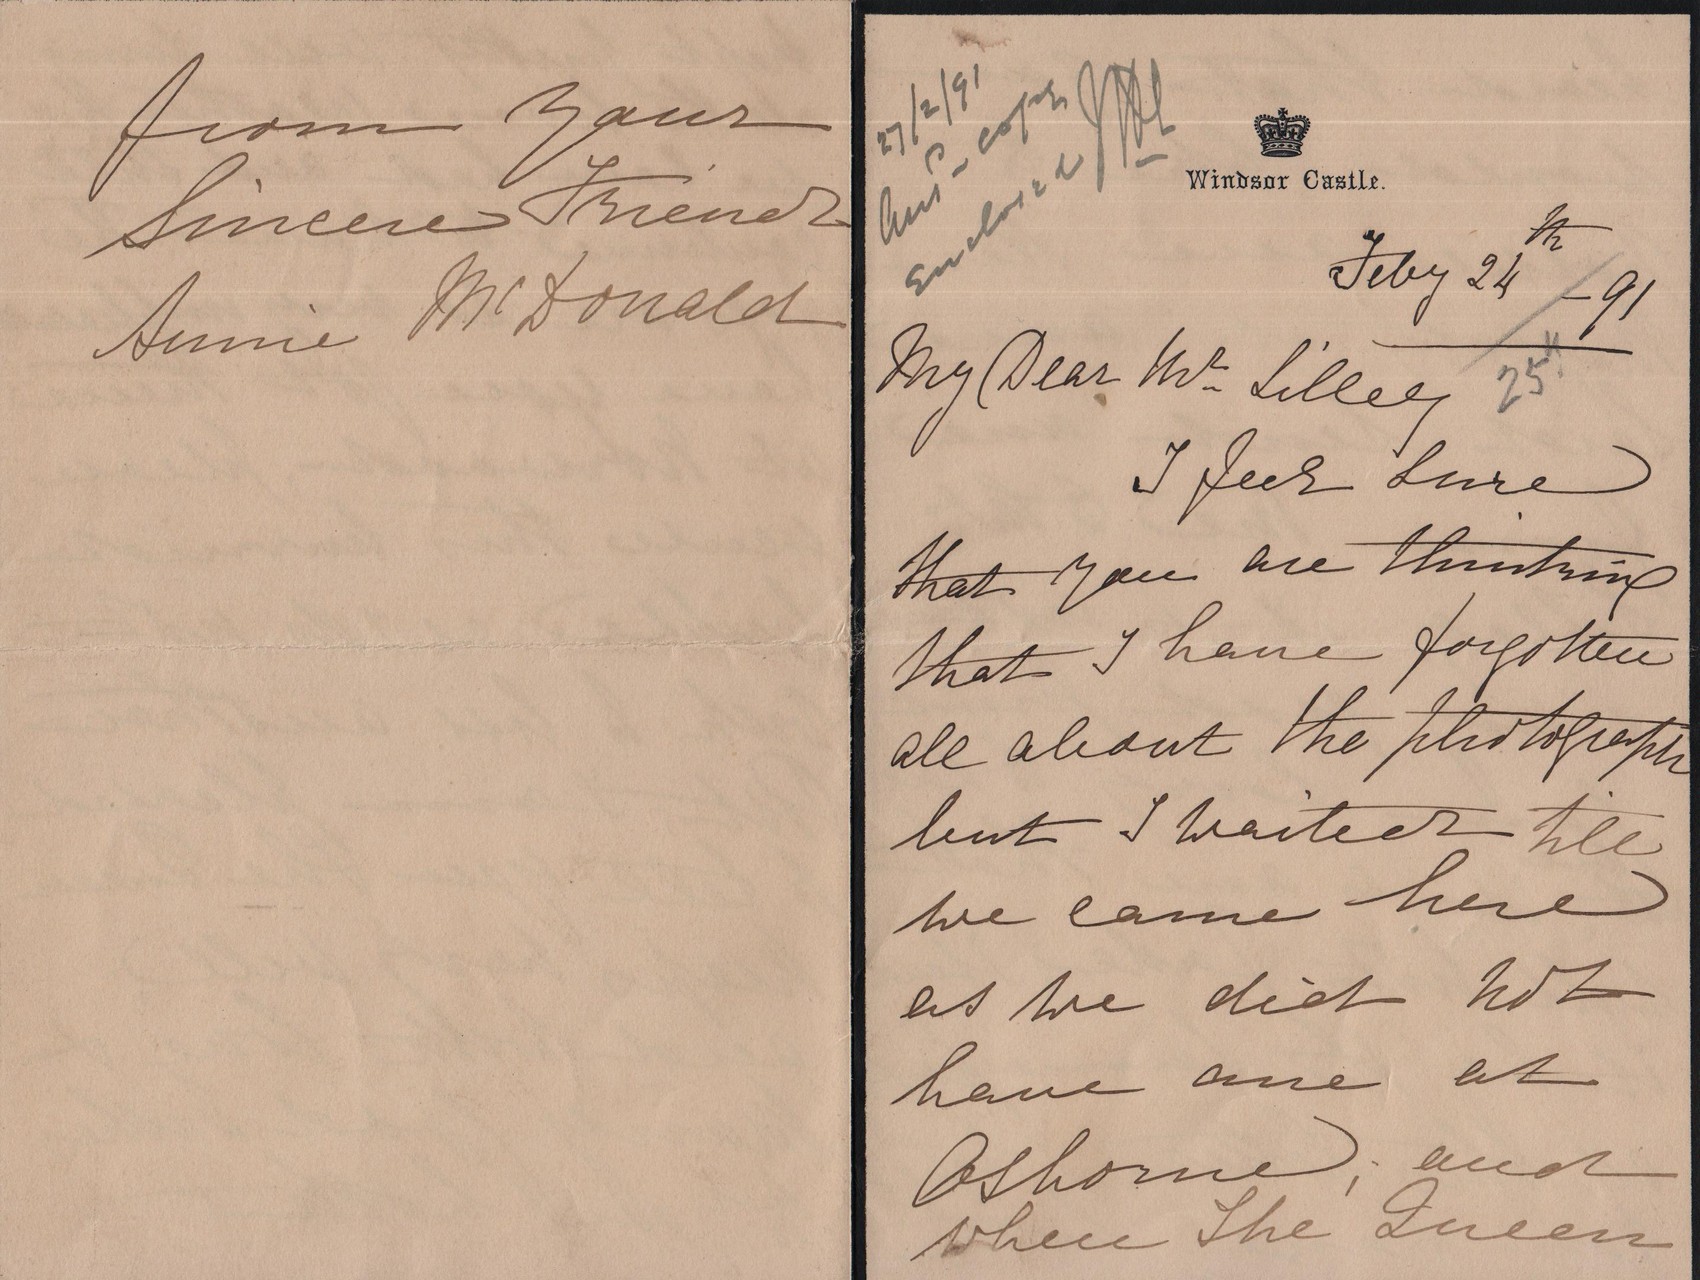 from your
Sincere Friend
Annie McDonald
27/2/91
Ansd - copy
enclosed
Windsor Castle.
Feby 24th -91
25th
My Dear Mr Lilley
I feel sure
that you are thinking
that I have forgotten
all about the photograph
but I waited till
we came here
as we did not
have one at
Osborne; and
when The Queen